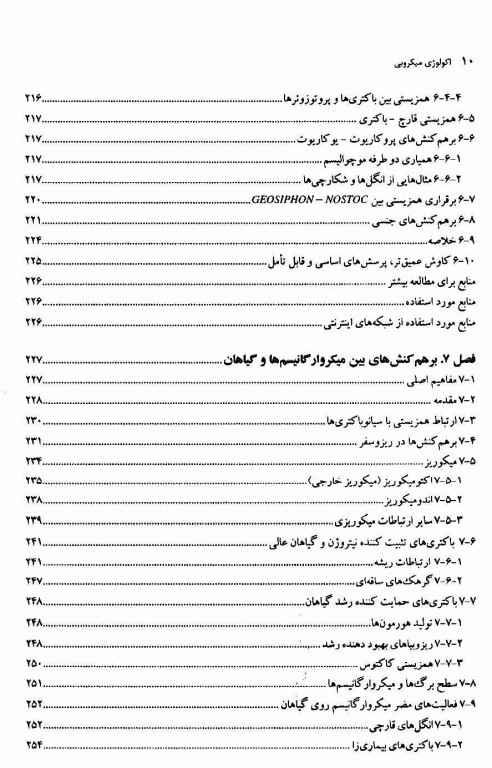 ۱۰ اکولوژی میکروبی
۶-۴-۴ همزیستی بین باکتری‌ها و پروتوزوئرها ۲۱۶
۶-۵ همزیستی قارچ - باکتری ۲۱۷
۶-۶ برهم‌کنش‌های پروکاریوت - یوکاریوت ۲۱۷
۶-۶-۱ همیاری دو طرفه موچوالیسم ۲۱۷
۶-۶-۲ مثال‌هایی از انگل‌ها و شکارچی‌ها ۲۱۷
۶-۷ برقراری همزیستی بین GEOSIPHON – NOSTOC ۲۲۰
۶-۸ برهم‌کنش‌های جنسی ۲۲۱
۶-۹ خلاصه ۲۲۴
۶-۱۰ کاوش عمیق‌تر، پرسش‌های اساسی و قابل تأمل ۲۲۵
منابع برای مطالعه بیشتر ۲۲۶
منابع مورد استفاده ۲۲۶
منابع مورد استفاده از شبکه‌های اینترنتی ۲۲۶
فصل ۷. برهم‌کنش‌های بین میکروارگانیسم‌ها و گیاهان ۲۲۷
۷-۱ مفاهیم اصلی ۲۲۷
۷-۲ مقدمه ۲۲۸
۷-۳ ارتباط همزیستی با سیانوباکتری‌ها ۲۳۰
۷-۴ برهم‌کنش‌ها در ریزوسفر ۲۳۱
۷-۵ میکوریز ۲۳۴
۷-۵-۱ اکتومیکوریز (میکوریز خارجی) ۲۳۵
۷-۵-۲ اندومیکوریز ۲۳۸
۷-۵-۳ سایر ارتباطات میکوریزی ۲۳۹
۷-۶ باکتری‌های تثبیت کننده نیتروژن و گیاهان عالی ۲۴۱
۷-۶-۱ ارتباطات ریشه ۲۴۱
۷-۶-۲ گرهک‌های ساقه‌ای ۲۴۷
۷-۷ باکتری‌های حمایت کننده رشد گیاهان ۲۴۸
۷-۷-۱ تولید هورمون‌ها ۲۴۸
۷-۷-۲ ریزوبیاهای بهبود دهنده رشد ۲۴۸
۷-۷-۳ همزیستی کاکتوس ۲۵۰
۷-۸ سطح برگ‌ها و میکروارگانیسم‌ها ۲۵۱
۷-۹ فعالیت‌های مضر میکروارگانیسم روی گیاهان ۲۵۲
۷-۹-۱ انگل‌های قارچی ۲۵۲
۷-۹-۲ باکتری‌های بیماری‌زا ۲۵۴